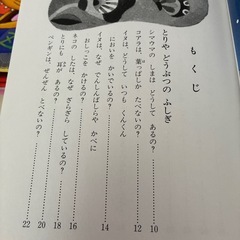 もくじ
とりや どうぶつの ふしぎ
シマウマの しまは どうして あるの? 10
コアラは、葉っぱしか たべないの? 12
イヌは、どうして いつも くんくん
においを かいでいるの? 14
イヌは、なぜ でんしんばしらや かべに
おしっこを かけるの? 16
ネコの したは、なぜ ざらざら しているの? 18
とりにも 耳が あるの? 20
ペンギンは、ぜんぜん とべないの? 22